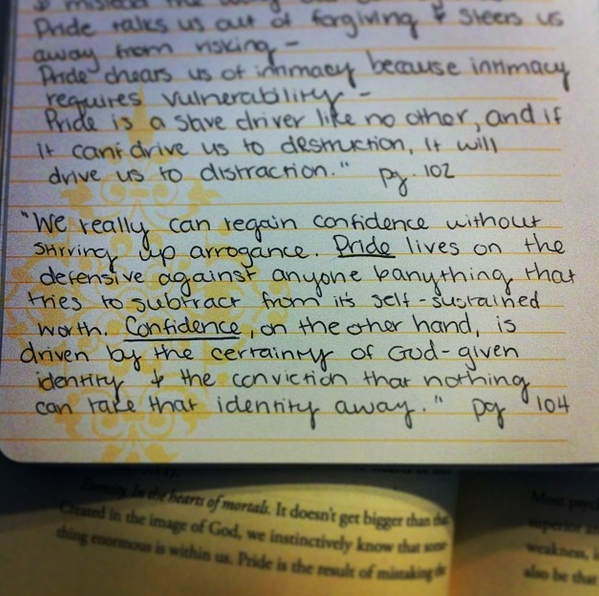 Pride talks us out of forgiving & steers us
away from risking -
Pride chears us of intimacy because intimacy
requires vulnerability -
Pride is a slave driver like no other, and if
it can't drive us to destruction, it will
drive us to distraction." pg. 102
"We really can regain confidence without
stirring up arrogance. Pride lives on the
defensive against anyone & anything that
tries to subtract from its self-sustained
worth. Confidence, on the other hand, is
driven by the certainty of God-given
identity & the conviction that nothing
can take that identity away." pg 104
Eternity. In the hearts of mortals. It doesn't get bigger than that
Created in the image of God, we instinctively know that some
thing enormous is within us. Pride is the result of mistaking the
Most psych
superior an
weakness, i
also be that